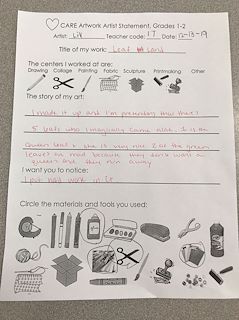 CARE Artwork Artist Statement, Grades 1-2
Artist: Liv Teacher code: 17 Date: 12-13-19
Title of my work: Leaf Land
The centers I worked at are:
Drawing Collage Painting Fabric Sculpture Printmaking Other
The story of my art:
I made it up and I'm pretending that there's
5 leafs who magically came alive. 1 is the
Queen leaf & she is very nice 2 of the green
leaves are mad because they don't want a
queen and they run away
I want you to notice:
I put hard work in it
Circle the materials and tools you used: